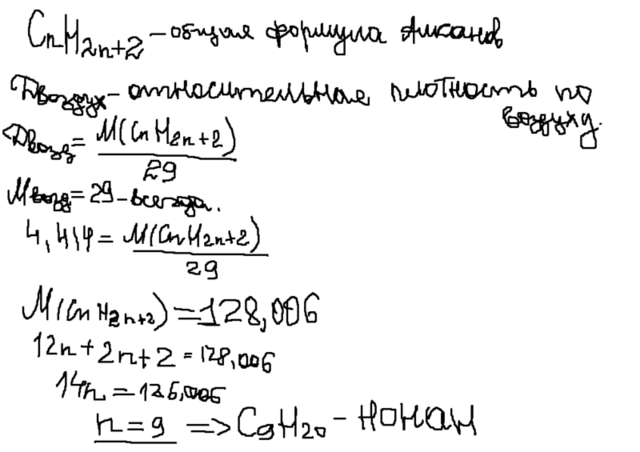 CnH2n+2 - общая формула алканов
Dвоздух - относительная плотность по воздуху.
Dвозд = M(CnH2n+2) / 29
Mвозд = 29 - всегда.
4,414 = M(CnH2n+2) / 29
M(CnH2n+2) = 128,006
12n + 2n + 2 = 128,006
14n = 126,006
n = 9 => C9H20 - нонан